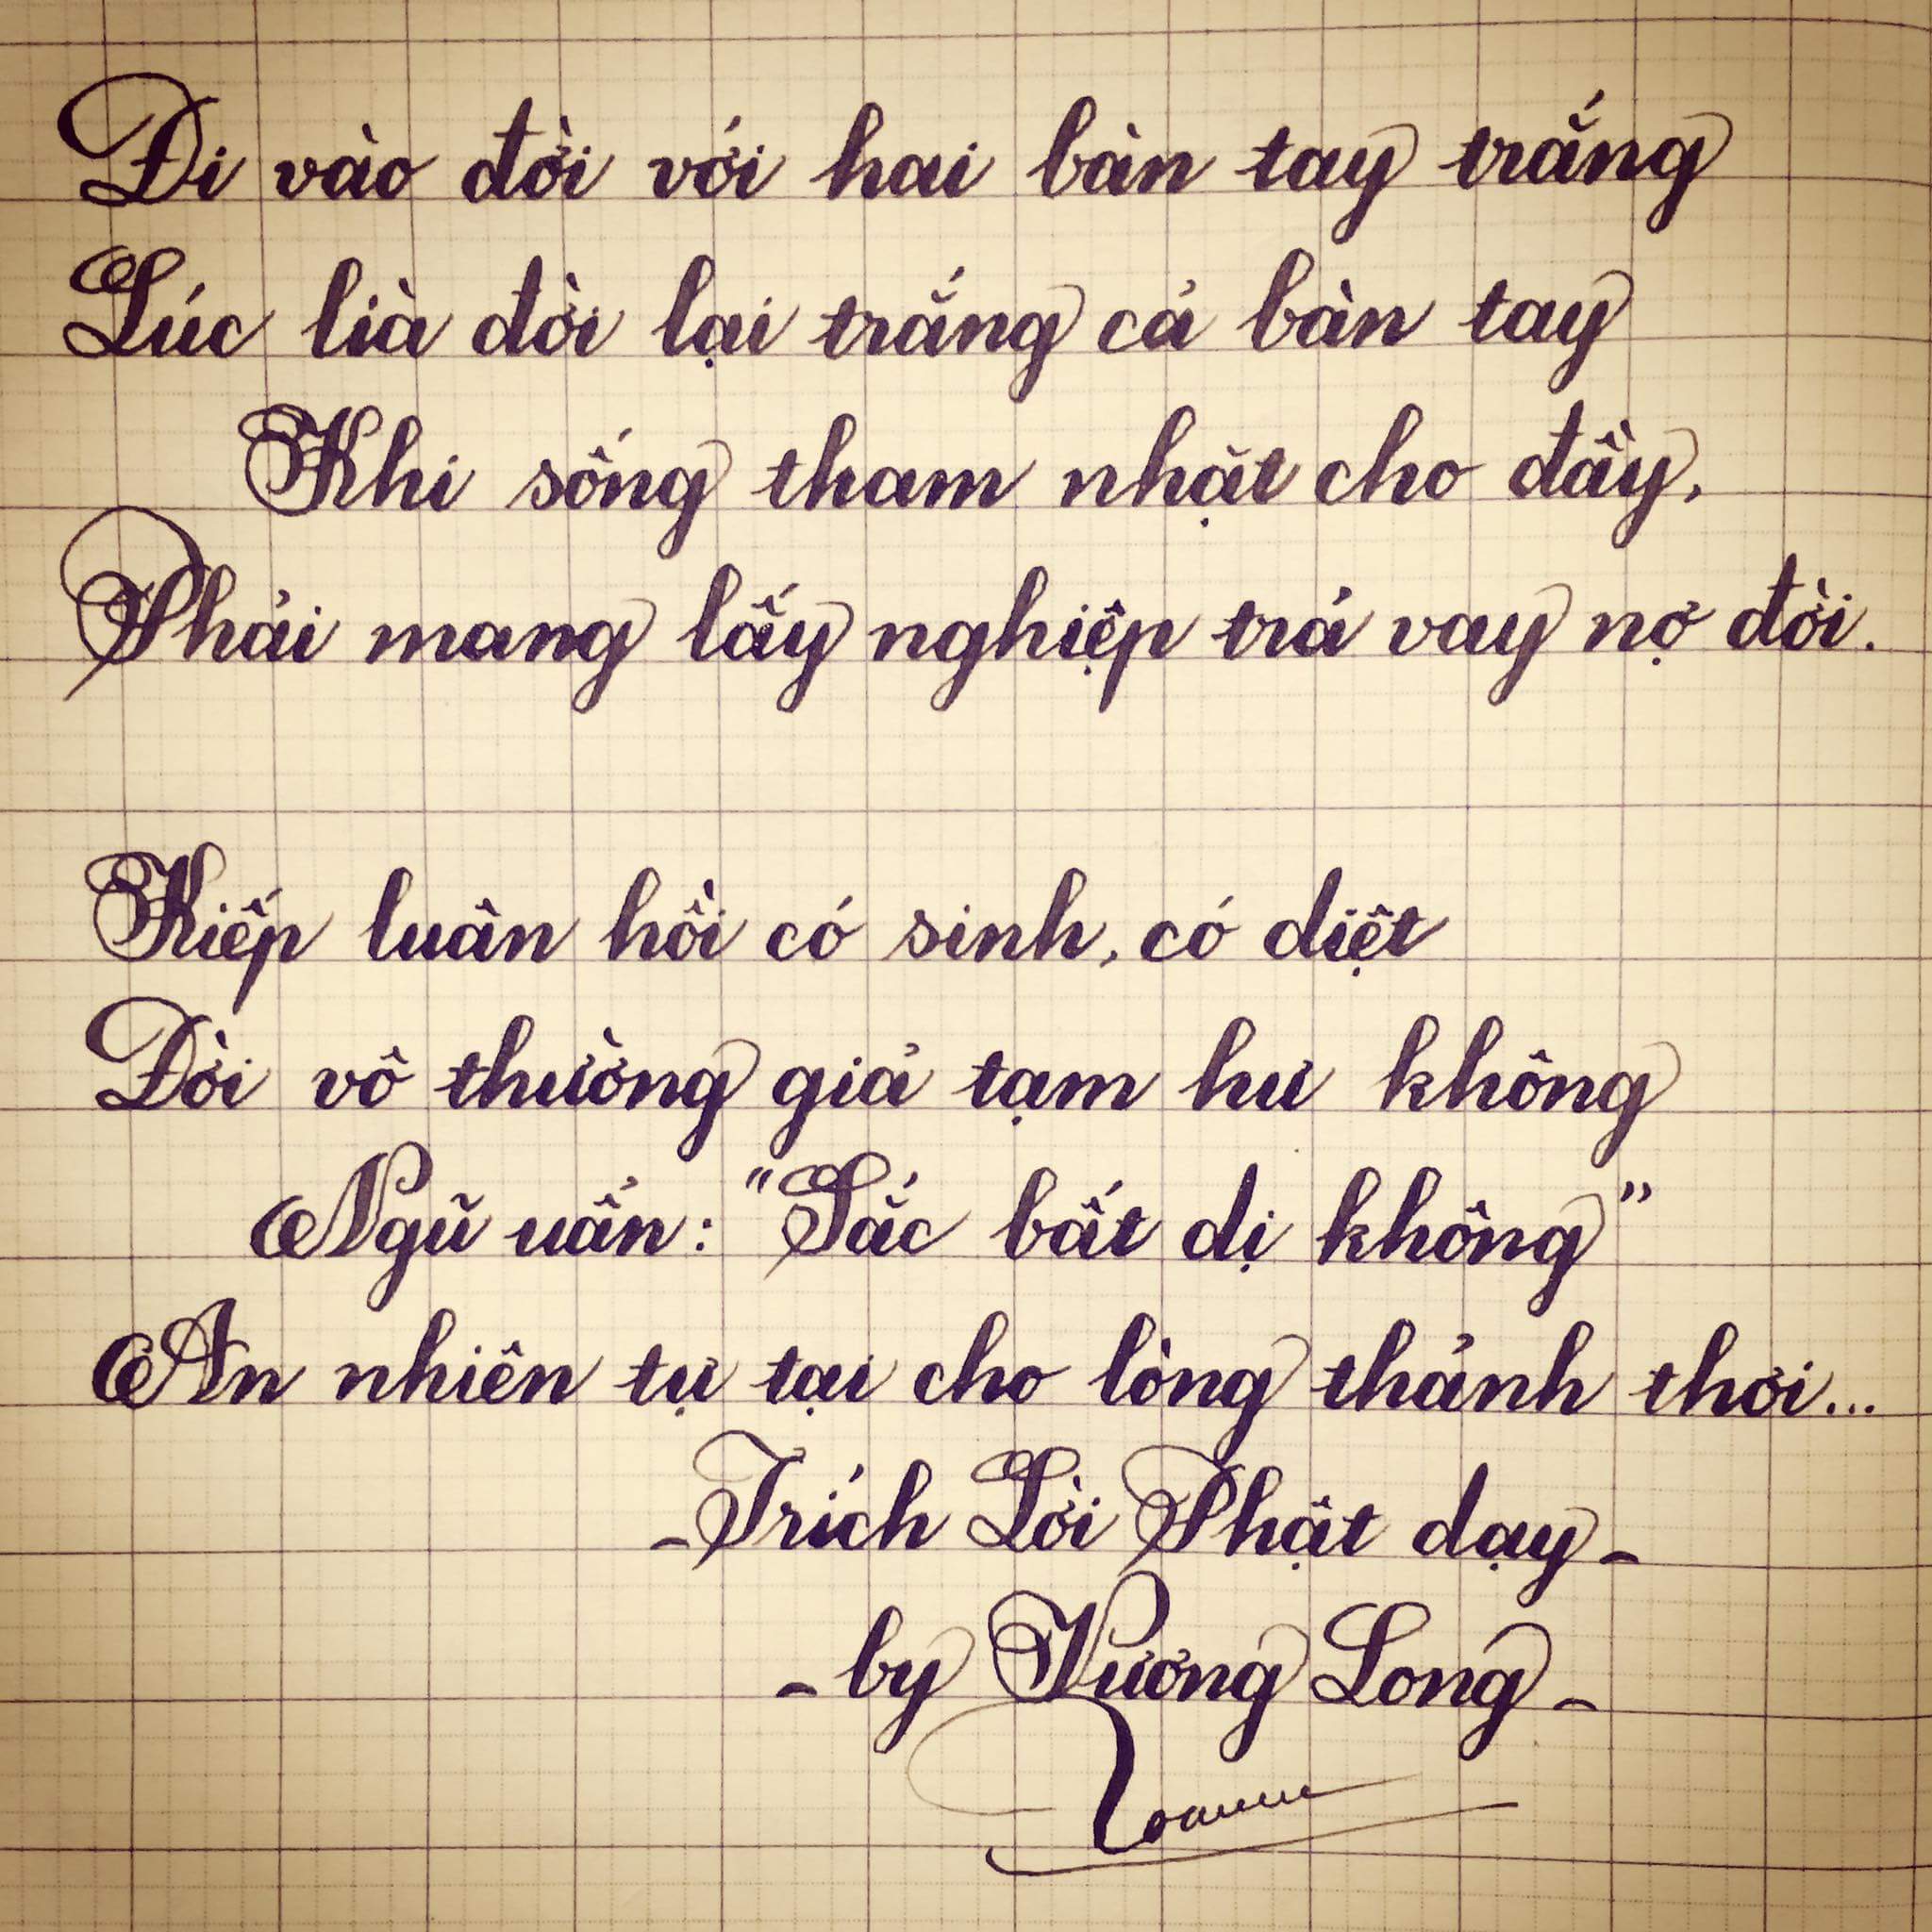 Đi vào đời với hai bàn tay trắng
Lúc lià đời lại trắng cả bàn tay
Khi sống tham nhặt cho đầy,
Phải mang lấy nghiệp trả vay nợ đời.
Kiếp luân hồi có sinh, có diệt
Đời vô thường giả tạm hư không
Ngũ uẩn: "Sắc bất dị không"
An nhiên tự tại cho lòng thảnh thơi...
-Trích Lời Phật dạy-
-by Vương Long-